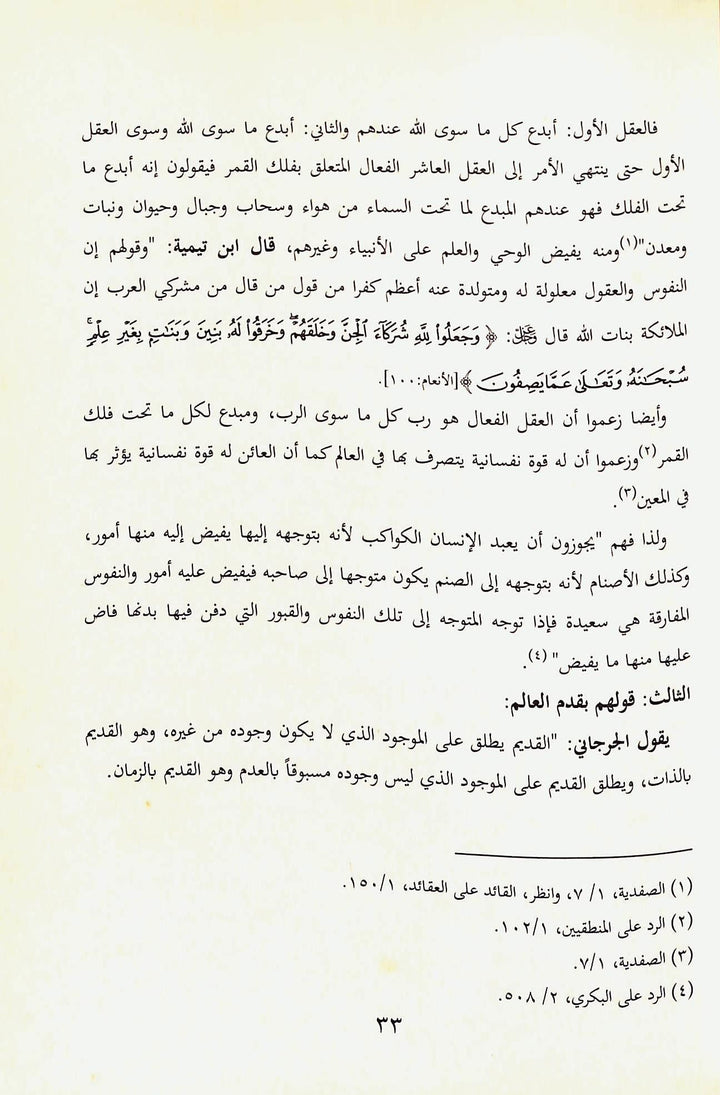 فالعقل الأول: أبدع كل ما سوى الله عندهم والثاني: أبدع ما سوى الله وسوى العقل
الأول حتى ينتهي الأمر إلى العقل العاشر الفعال المتعلق بفلك القمر فيقولون إنه أبدع ما
تحت الفلك فهو عندهم المبدع لما تحت السماء من هواء وسحاب وجبال وحيوان ونبات
ومعدن"(١)ومنه يفيض الوحي والعلم على الأنبياء وغيرهم، قال ابن تيمية: "وقولهم إن
النفوس والعقول معلولة له ومتولدة عنه أعظم كفرا من قول من قال من مشركي العرب إن
الملائكة بنات الله قال ﷻ: ﴿ وَجَعَلُوا۟ لِلَّهِ شُرَكَآءَ ٱلْجِنَّ وَخَلَقَهُمْ ۖ وَخَرَقُوا۟ لَهُۥ بَنِينَ وَبَنَـٰتٍۭ بِغَيْرِ عِلْمٍ ۚ
سُبْحَـٰنَهُۥ وَتَعَـٰلَىٰ عَمَّا يَصِفُونَ ﴾[الأنعام:١٠٠].
وأيضا زعموا أن العقل الفعال هو رب كل ما سوى الرب، ومبدع لكل ما تحت فلك
القمر(٢)وزعموا أن له قوة نفسانية يتصرف بها في العالم كما أن العائن له قوة نفسانية يؤثر بها
في المعين(٣).
ولذا فهم "يجوزون أن يعبد الإنسان الكواكب لأنه بتوجهه إليها يفيض إليه منها أمور،
وكذلك الأصنام لأنه بتوجهه إلى الصنم يكون متوجها إلى صاحبه فيفيض عليه أمور والنفوس
المفارقة هي سعيدة فإذا توجه المتوجه إلى تلك النفوس والقبور التي دفن فيها بدنها فاض
عليها منها ما يفيض" (٤).
الثالث: قولهم بقدم العالم:
يقول الجرجاني: "القديم يطلق على الموجود الذي لا يكون وجوده من غيره، وهو القديم
بالذات، ويطلق القديم على الموجود الذي ليس وجوده مسبوقاً بالعدم وهو القديم بالزمان.
(١) الصفدية، ١/ ٧، وانظر، القائد على العقائد، ١/ ١٥٠.
(٢) الرد على المنطقيين، ١/ ١٠٢.
(٣) الصفدية، ١/ ٧.
(٤) الرد على البكري، ٢/ ٥٠٨.
٣٣